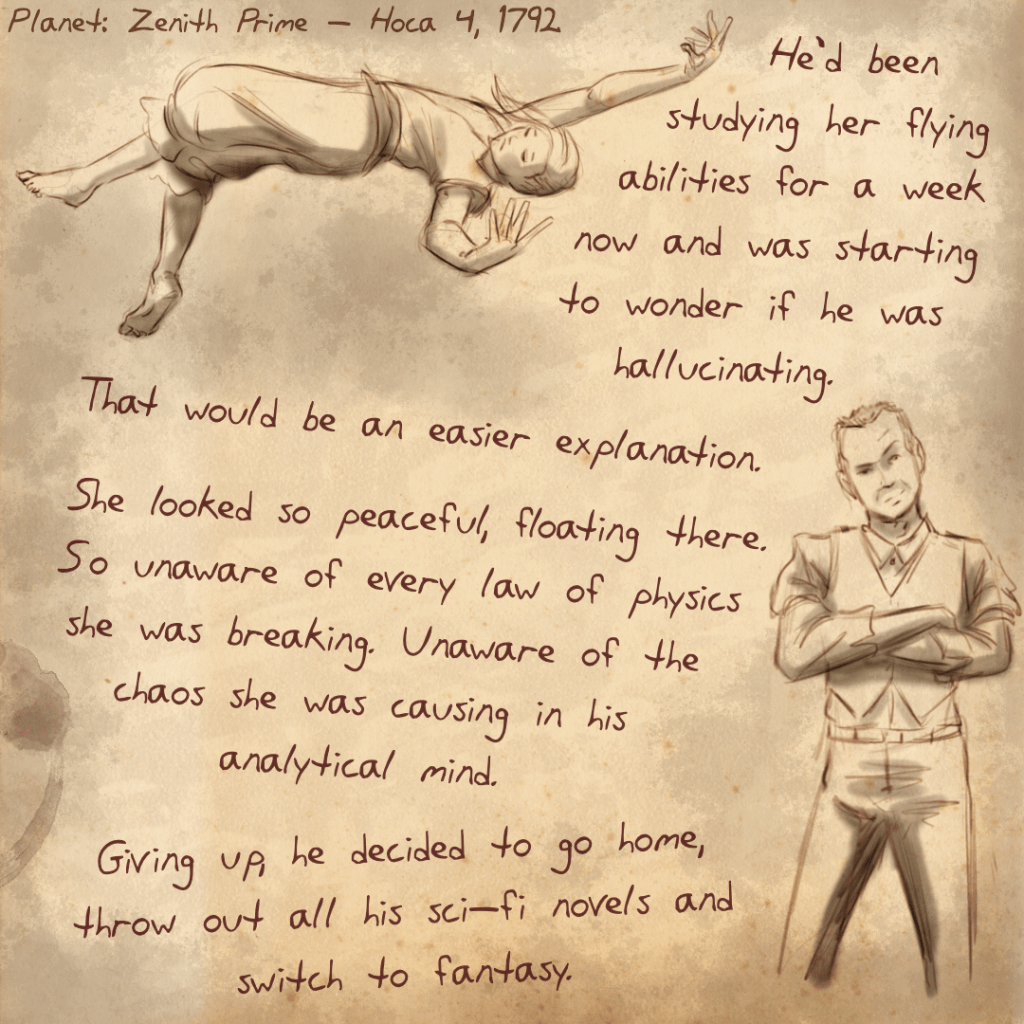 Planet: Zenith Prime – Hoca 4, 1792
He'd been
studying her flying
abilities for a week
now and was starting
to wonder if he was
hallucinating.
That would be an easier explanation.
She looked so peaceful, floating there.
So unaware of every law of physics
she was breaking. Unaware of the
chaos she was causing in his
analytical mind.
Giving up, he decided to go home,
throw out all his sci-fi novels and
switch to fantasy.